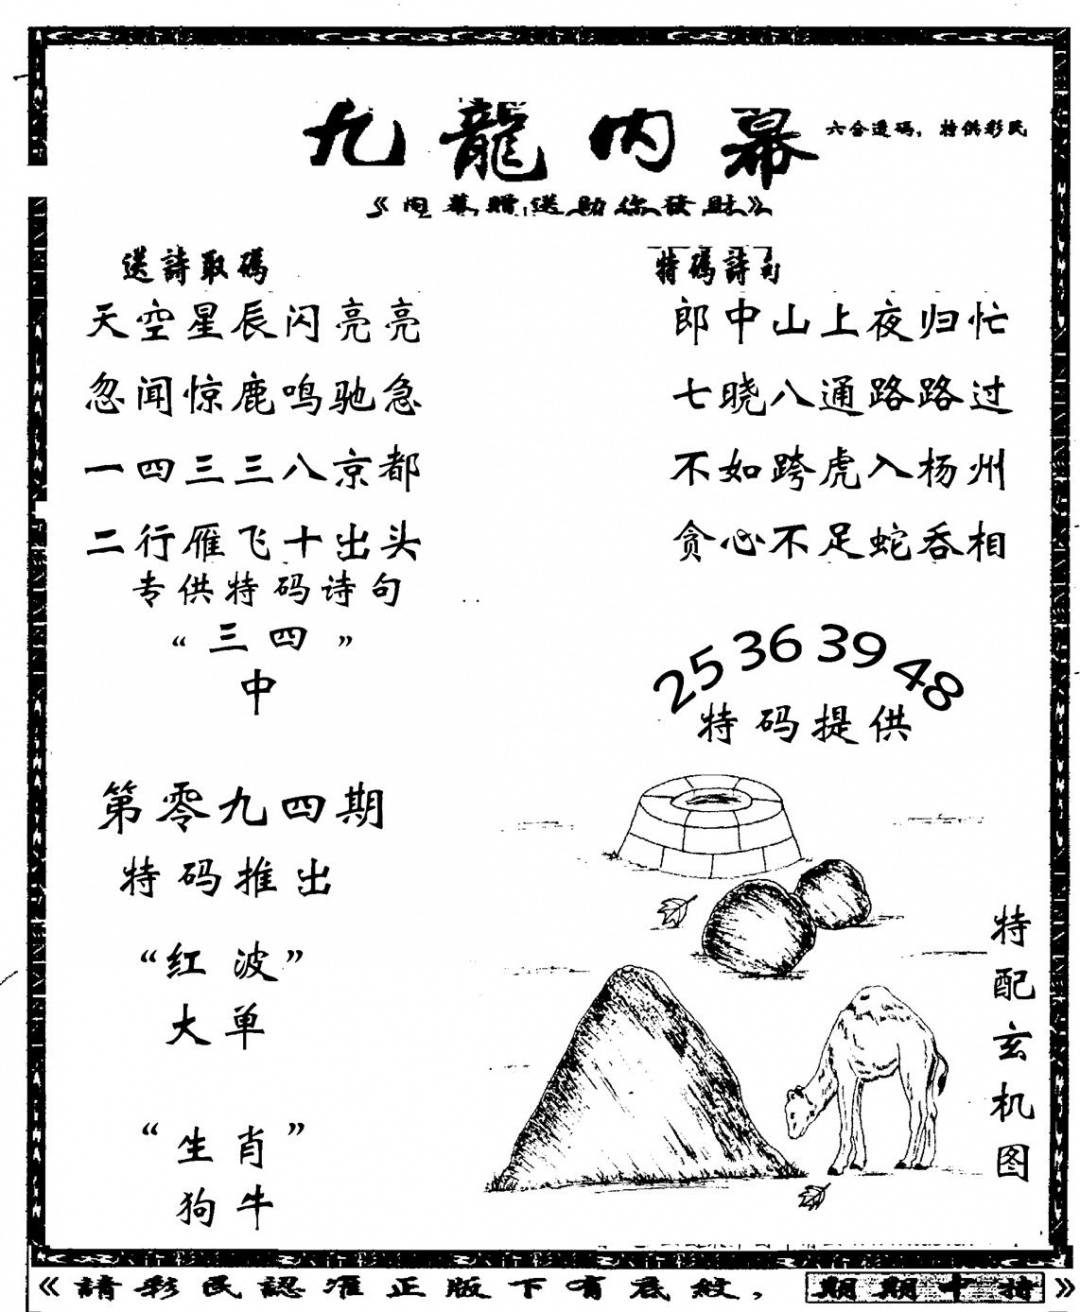 九龍内幕
六合透码，特供彩民
《内幕贈送助你發財》
送詩取碼
天空星辰闪亮亮
忽闻惊鹿鸣驰急
一四三三八京都
二行雁飞十出头
专供特码诗句
“三四”
中
第零九四期
特码推出
“红波”
大单
“生肖”
狗牛
特碼詩句
郎中山上夜归忙
七晓八通路路过
不如跨虎入杨州
贪心不足蛇吞相
25 36 39 48
特码提供
特配玄机图
《請彩民認准正版下有底紋，期期中特》